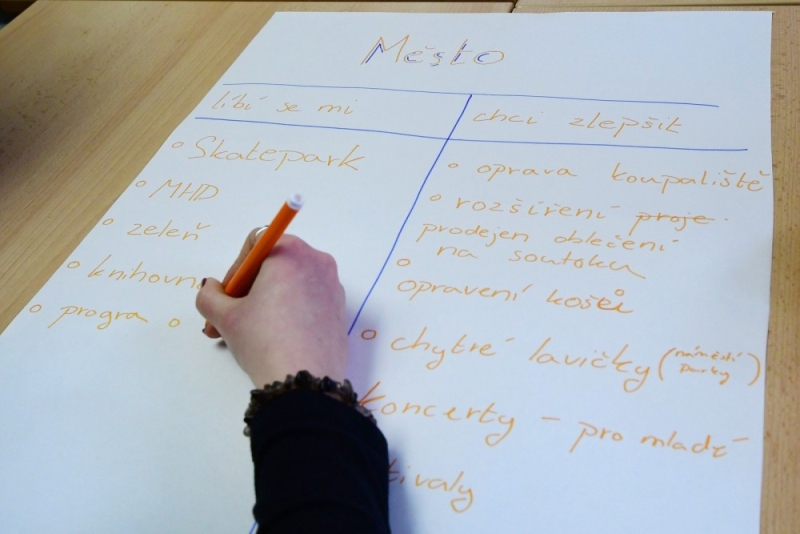 Město
líbí se mi
chci zlepšit
Skatepark
MHD
zeleň
knihovn
progra
oprava koupaliště
rozšíření proje
prodejen oblečení
na soutoku
opravení košů
chytré lavičky (náměstí
parky)
koncerty - pro mladé
tivaly